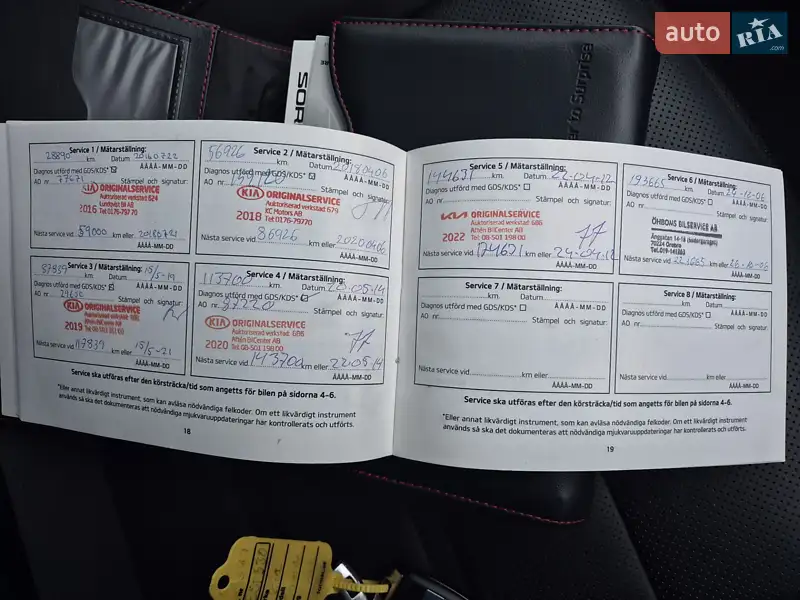 auto RIA .com
SOR
er to Surprise
Service 1 / Mätarställning:
28890 km. Datum 20160722
ÅÅÅÅ-MM-DD
Diagnos utförd med GDS/KDS*
AO nr. 77671 Stämpel och signatur:
KIA ORIGINALSERVICE
Auktoriserad verkstad 624
Lundqvist Bil AB
2016 Tel: 0176-797 70
Nästa service vid 59000 km eller
ÅÅÅÅ-MM-DD
Service 2 / Mätarställning:
56926 km. Datum 20180406
ÅÅÅÅ-MM-DD
Diagnos utförd med GDS/KDS*
AO nr. Stämpel och signatur:
KIA ORIGINALSERVICE
Auktoriserad verkstad 679
KC Motors AB
2018 Tel: 0176-79770
Nästa service vid 86926 km eller 20200406
ÅÅÅÅ-MM-DD
Service 3 / Mätarställning:
87839 km. Datum 15/5-19
ÅÅÅÅ-MM-DD
Diagnos utförd med GDS/KDS*
AO nr. Stämpel och signatur:
KIA ORIGINALSERVICE
Auktoriserad verkstad 686
Athén BilCenter AB
2019 Tel: 08-501 198 00
Nästa service vid 117839 km eller 15/5-21
ÅÅÅÅ-MM-DD
Service 4 / Mätarställning:
113700 km. Datum 20-05-14
ÅÅÅÅ-MM-DD
Diagnos utförd med GDS/KDS*
AO nr. 87220 Stämpel och signatur:
KIA ORIGINALSERVICE
Auktoriserad verkstad 686
Athén BilCenter AB
2020 Tel: 08-501 198 00
Nästa service vid 143700 km eller 22-05-14
ÅÅÅÅ-MM-DD
Service ska utföras efter den körsträcka/tid som angetts för bilen på sidorna 4-6.
*Eller annat likvärdigt instrument, som kan avläsa nödvändiga felkoder. Om ett likvärdigt instrument
används så ska det dokumenteras att nödvändiga mjukvaruuppdateringar har kontrollerats och utförts.
18
Service 5 / Mätarställning:
144631 km. Datum 22-04-12
ÅÅÅÅ-MM-DD
Diagnos utförd med GDS/KDS*
AO nr. Stämpel och signatur:
KIA ORIGINALSERVICE
Auktoriserad verkstad 686
Athén BilCenter AB
2022 Tel: 08-501 198 00
Nästa service vid 174631 km eller 24-04-12
ÅÅÅÅ-MM-DD
Service 6 / Mätarställning:
193665 km. Datum 24-10-06
ÅÅÅÅ-MM-DD
Diagnos utförd med GDS/KDS*
AO nr. Stämpel och signatur:
ÖHBOMS BILSERVICE AB
70224 Örebro
Nästa service vid 223665 km eller 26-10-06
ÅÅÅÅ-MM-DD
Service 7 / Mätarställning:
km. Datum
ÅÅÅÅ-MM-DD
Diagnos utförd med GDS/KDS*
AO nr. Stämpel och signatur:
Nästa service vid km eller
ÅÅÅÅ-MM-DD
Service 8 / Mätarställning:
km. Datum
ÅÅÅÅ-MM-DD
Diagnos utförd med GDS/KDS*
AO nr. Stämpel och signatur:
Nästa service vid km eller
ÅÅÅÅ-MM-DD
Service ska utföras efter den körsträcka/tid som angetts för bilen på sidorna 4-6.
*Eller annat likvärdigt instrument, som kan avläsa nödvändiga felkoder. Om ett likvärdigt instrument
används så ska det dokumenteras att nödvändiga mjukvaruuppdateringar har kontrollerats och utförts.
19